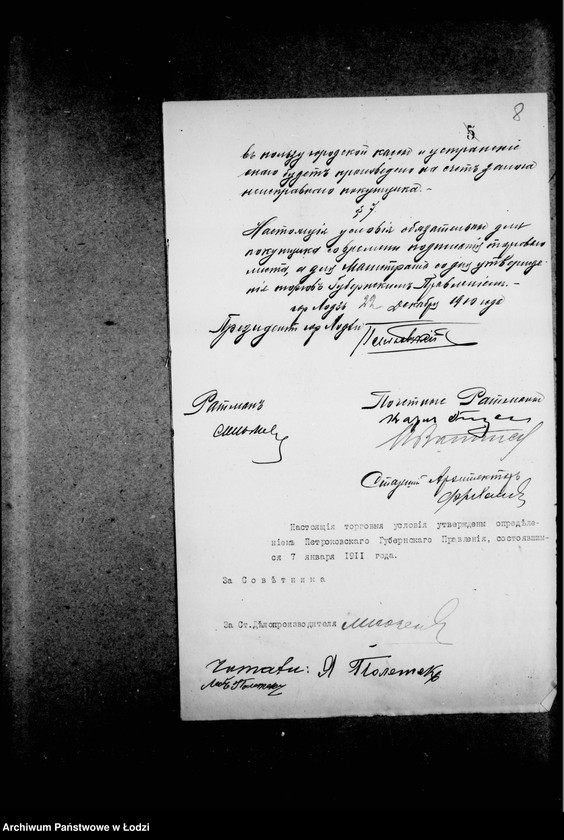 8
5
въ пользу городской кассы и устраненіе
онаго будетъ произведено на счетъ залога
неисправнаго покупщика.-
§ 7.
Настоящія условія обязательны для
покупщика со времени подписанія торговаго
листа, а для Магистрата со дня утвержде-
нія торговъ Губернскимъ Правленіемъ.-
гор. Лодзь 22 Декабря 1910 года
Президентъ гор. Лодзи
Ратманъ
Почетные Ратманы
Старшій Архитекторъ
Настоящія торговыя условія утверждены опредѣле-
ніемъ Петроковскаго Губернскаго Правленія, состоявшим-
ся 7 января 1911 года.
За Совѣтника
За Ст. Дѣлопроизводителя
Читали: Я Полетекъ
Archiwum Państwowe w Łodzi